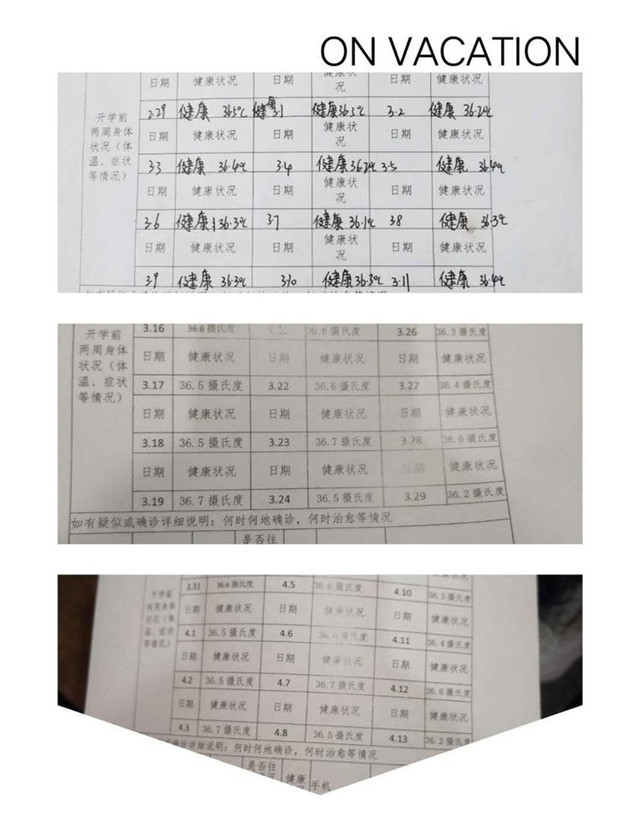 ON VACATION
日期 健康状况 日期 健康状况 日期 健康状况
开学前两周身体状况（体温、症状等情况）
2.29 健康 36.5℃ 3.1 健康36.5℃ 3.2 健康 36.2℃
日期 健康状况 日期 健康状况 日期 健康状况
3.3 健康 36.4℃ 3.4 健康 36.2℃ 3.5 健康. 36.4℃
日期 健康状况 日期 健康状况 日期 健康状况
3.6 健康 36.3℃ 3.7 健康 36.1℃ 3.8 健康 36.3℃
日期 健康状况 日期 健康状况 日期 健康状况
3.9 健康 36.3℃ 3.10 健康36.5℃ 3.11 健康 36.4℃
开学前两周身体状况（体温、症状等情况）
3.16 36.6摄氏度 36.6摄氏度 3.26 36.3摄氏度
日期 健康状况 日期 健康状况 日期 健康状况
3.17 36.5摄氏度 3.22 36.6摄氏度 3.27 36.4摄氏度
日期 健康状况 日期 健康状况 日期 健康状况
3.18 36.5摄氏度 3.23 36.7摄氏度 3.28 36.6摄氏度
日期 健康状况 日期 健康状况 健康状况
3.19 36.7摄氏度 3.24 36.5摄氏度 3.29 36.2摄氏度
如有疑似或确诊详细说明：何时何地确诊，何时治愈等情况
是否往
开学前两周身体状况（体温、症状等情况）
3.31 36.6摄氏度 4.5 36.6摄氏度 4.10 36.3摄氏度
日期 健康状况 日期 健康状况 日期 健康状况
4.1 36.5摄氏度 4.6 4.11 36.4摄氏度
日期 健康状况 日期 健康状况 日期 健康状况
4.2 36.5摄氏度 4.7 36.7摄氏度 4.12 36.6摄氏度
日期 健康状况 日期 健康状况 日期 健康状况
4.3 36.7摄氏度 4.8 36.5摄氏度 4.13 36.2摄氏度
详细说明：何时何地确诊，何时治愈等情况
是否往
健康 手机